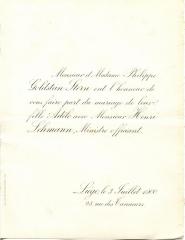 Monsieur et Madame Philippe
Goldstein Stern ont l'honneur de
vous faire part du mariage de leur
fille Adèle avec Monsieur Henri
Lehmann, Ministre officiant.
Liége, le 3 Juillet 1900
rue des Tanneurs